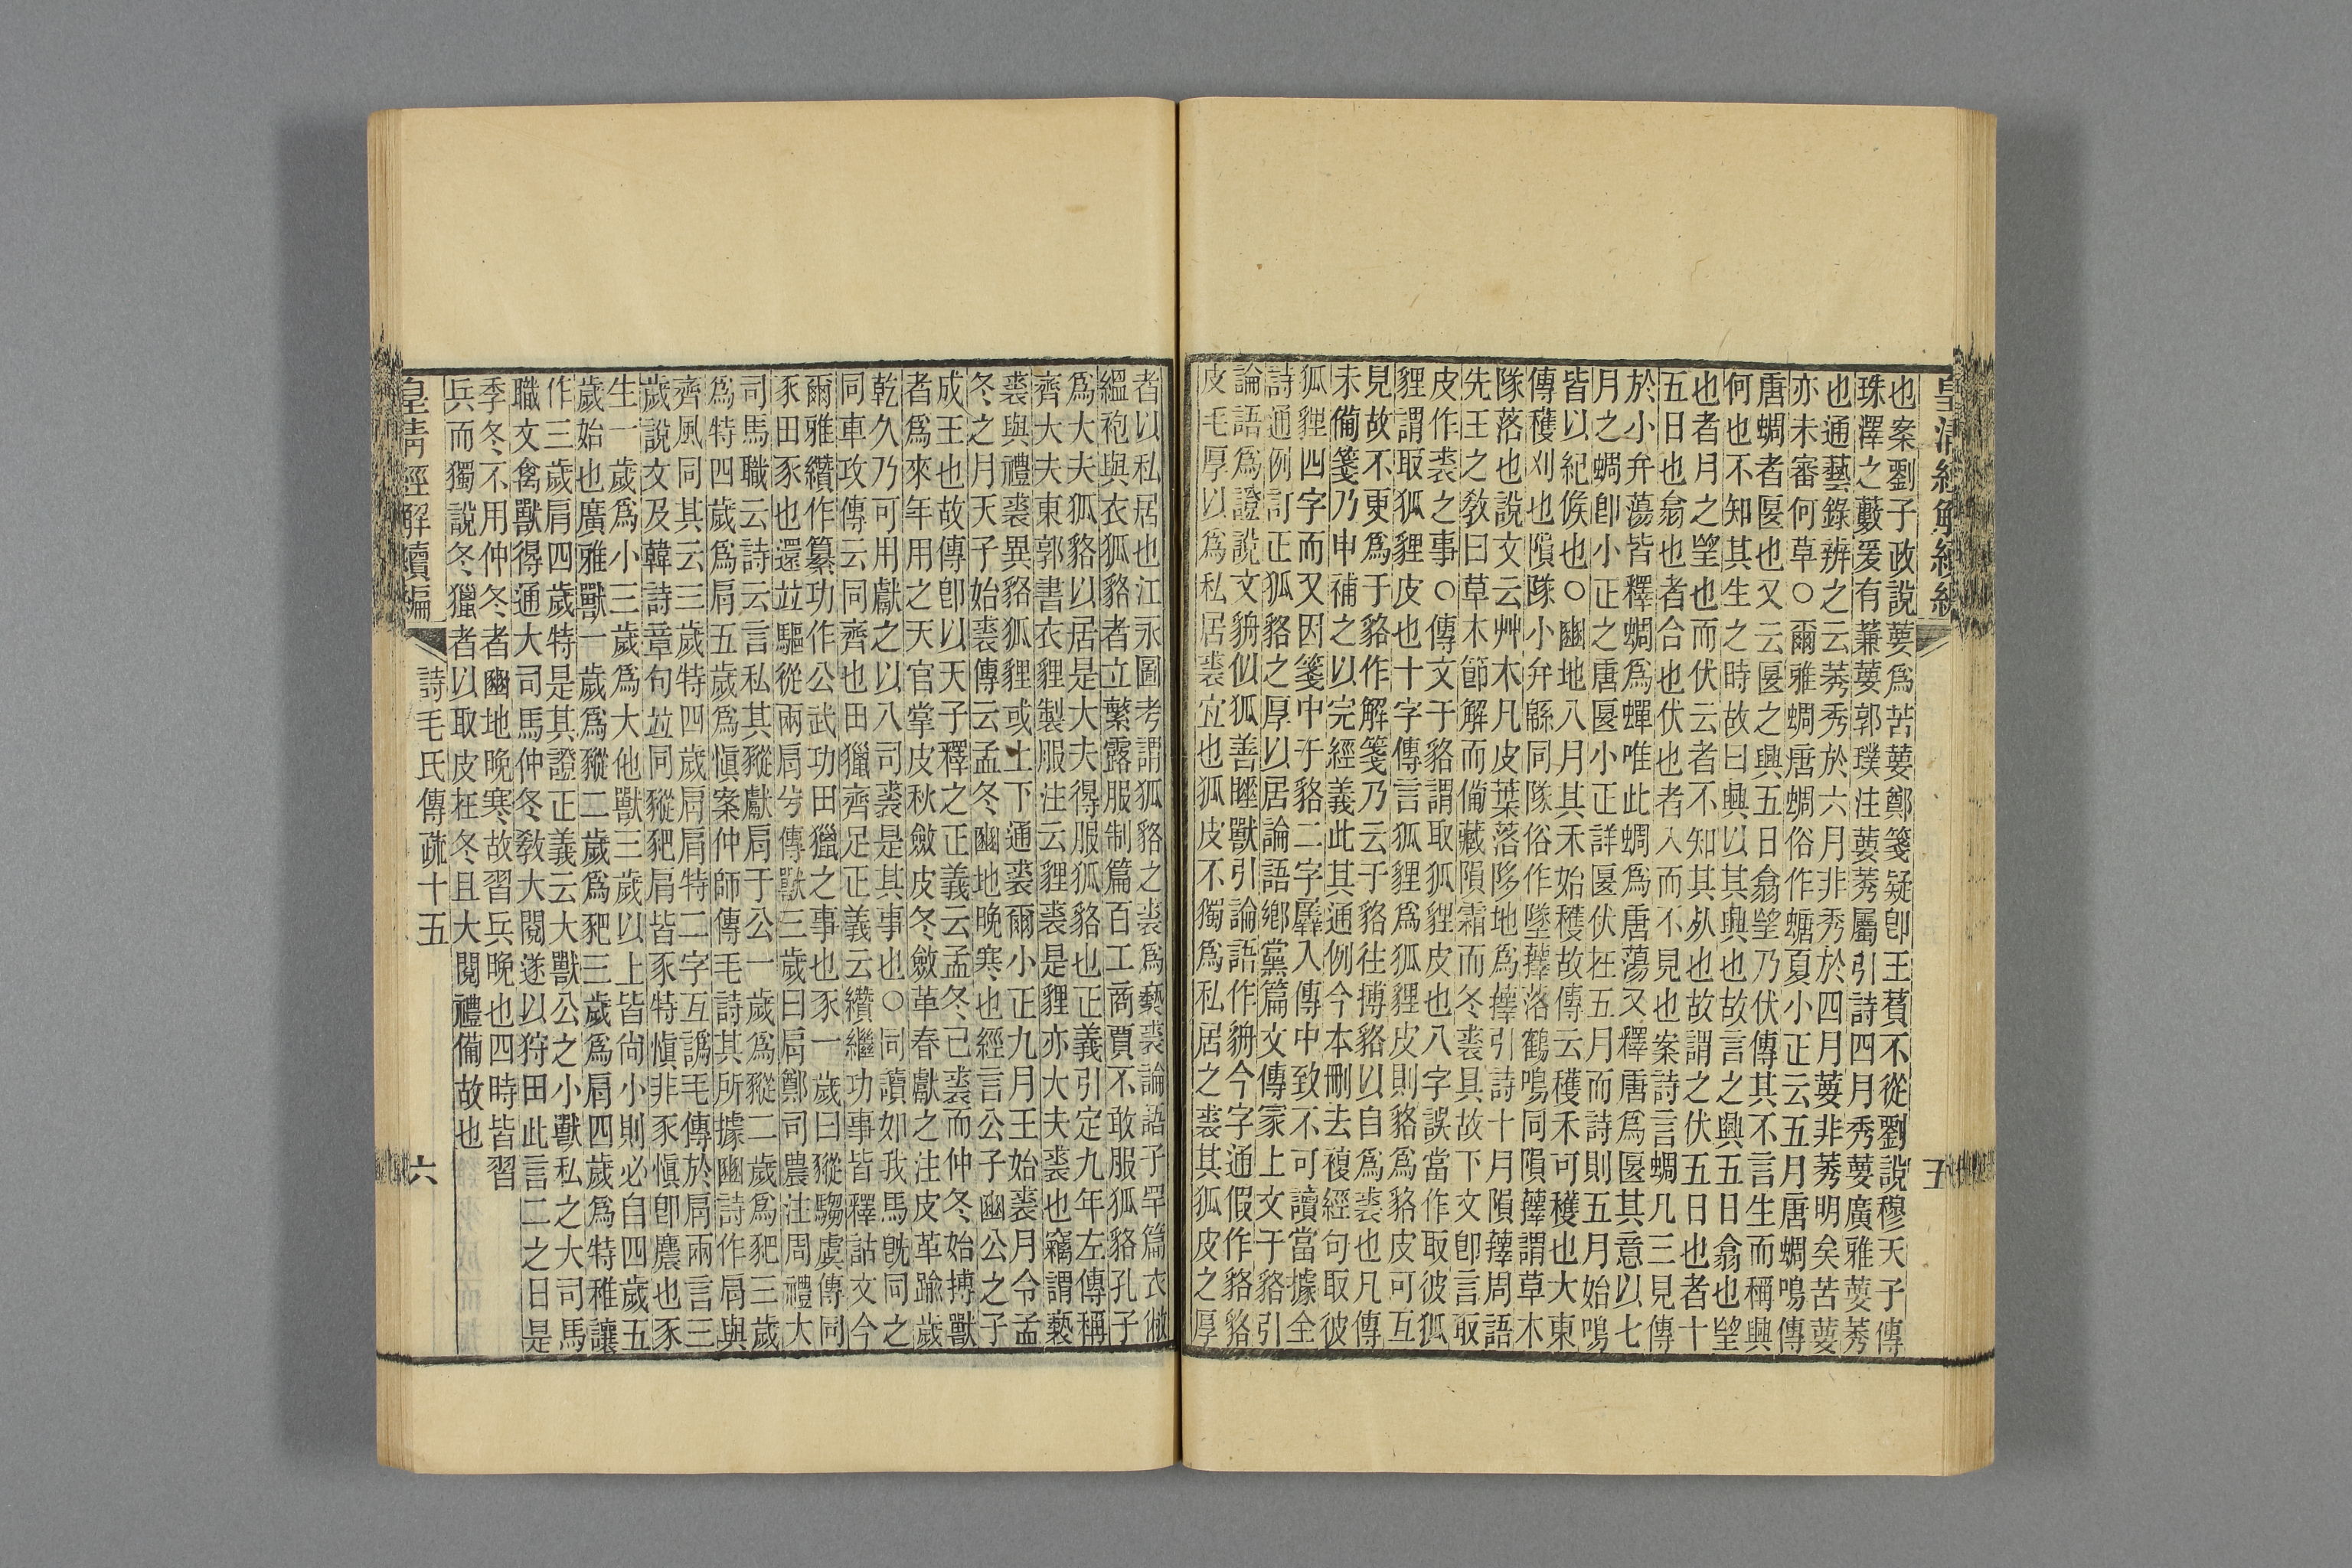 皇清經解續編
五
也案劉子政說葽爲苦葽鄭箋疑卽王萯不從劉說穆天子傳
珠澤之藪爰有蒹葽郭璞注葽莠屬引詩四月秀葽廣雅葽莠
也通藝錄辨之云莠秀於六月非秀於四月葽非莠明矣苦葽
亦未審何草○爾雅蜩唐蜩俗作螗夏小正云五月唐蜩鳴傳
唐蜩者匽也又云匽之興五日翕望乃伏傳其不言生而稱興
何也不知其生之時故曰興以其興也故言之興五日翕也望
也者月之望也而伏云者不知其㱙也故謂之伏五日也者十
五日也翕也者合也伏也者入而不見也案詩言蜩凡三見傳
於小弁蕩皆釋蜩爲蟬唯此蜩爲唐蕩又釋唐爲匽其意以七
月之蜩卽小正之唐匽小正詳匽伏在五月而詩則五月始鳴
皆以紀候也○豳地八月其禾始穫故傳云穫禾可穫也大東
傳穫刈也隕隊小弁緜同隊俗作墜蘀落鶴鳴同隕蘀謂草木
隊落也說文云艸木凡皮葉落陊地爲蘀引詩十月隕蘀周語
先王之敎曰草木節解而備藏隕霜而冬裘具故下文卽言取
皮作裘之事○傳文于貉謂取狐貍皮也八字誤當作取彼狐
貍謂取狐貍皮也十字傳言狐貍爲狐貍皮則貉爲貉皮可互
見故不更爲于貉作解箋乃云于貉往搏貉以自爲裘也凡傳
未備箋乃申補之以完經義此其通例今本刪去複經句取彼
狐貍四字而又因箋中于貉二字羼入傳中致不可讀當據全
詩通例訂正狐貉之厚以居論語鄉黨篇文傳家上文于貉引
論語爲證說文貈似狐善睡獸引論語作貈今字通假作貉貉
皮毛厚以爲私居裘宜也狐皮不獨爲私居之裘其狐皮之厚
者以私居也江永圖考謂狐貉之裘爲褻裘論語子罕篇衣敝
縕袍與衣狐貉者立繁露服制篇百工商賈不敢服狐貉孔子
爲大夫狐貉以居是大夫得服狐貉也正義引定九年左傳稱
齊大夫東郭書衣貍製服注云貍裘是貍亦大夫裘也竊謂褻
裘與禮裘異貉狐貍或上下通裘爾小正九月王始裘月令孟
冬之月天子始裘傳云孟冬豳地晚寒也經言公子豳公之子
成王也故傳卽以天子釋之正義云孟冬已裘而仲冬始搏獸
者爲來年用之天官掌皮秋斂皮冬斂革春獻之注皮革踰歲
乾久乃可用獻之以八司裘是其事也○同讀如我馬旣同之
同車攻傳云同齊也田獵齊足正義云纘繼功事皆釋詁文今
爾雅纘作纂功作公武功田獵之事也豕一歲曰豵騶虞傳同
豕田豕也還竝驅從兩肩兮傳獸三歲曰肩鄭司農注周禮大
司馬職云詩云言私其豵獻肩于公一歲爲豵二歲爲豝三歲
爲特四歲爲肩五歲爲愼案仲師傳毛詩其所據豳詩作肩與
齊風同其云三歲特四歲肩肩特二字互譌毛傳於肩兩言三
歲說文及韓詩章句竝同豵豝肩皆豕特愼非豕愼卽麎也豕
生一歲爲小三歲爲大他獸三歲以上皆尙小則必自四歲五
歲始也廣雅獸一歲爲豵二歲爲豝三歲爲肩四歲爲特稚讓
作三歲肩四歲特是其證正義云大獸公之小獸私之大司馬
職文禽獸得通大司馬仲冬敎大閱遂以狩田此言二之日是
季冬不用仲冬者豳地晚寒故習兵晚也四時皆習
兵而獨說冬獵者以取皮在冬且大閱禮備故也
皇淸經解續編
詩毛氏傳疏十五
六